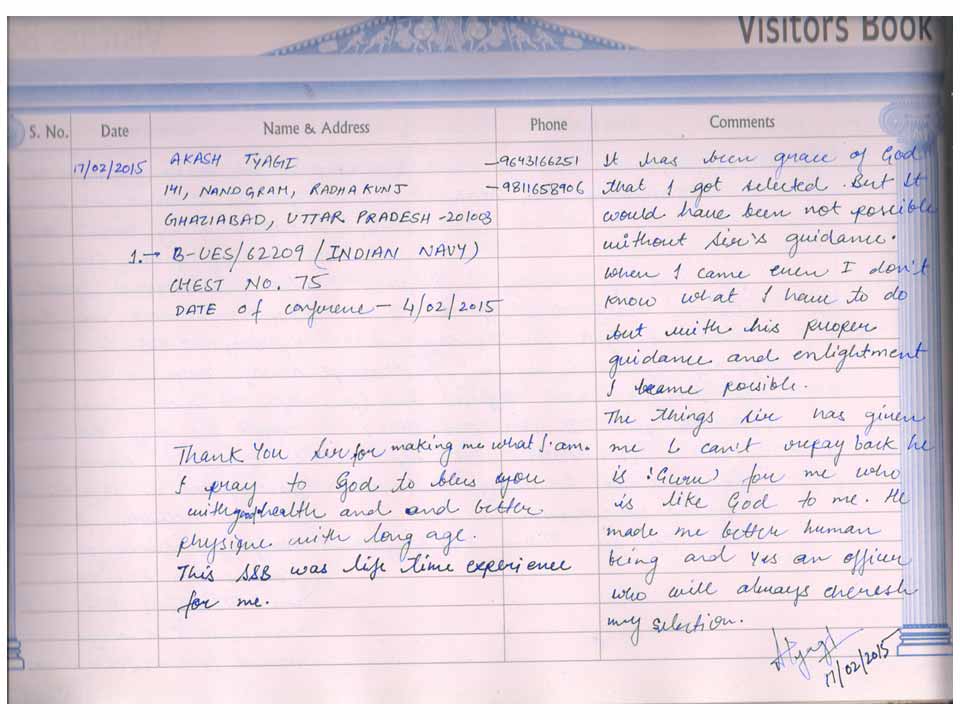 Visitors Book
S. No. Date Name & Address Phone Comments
17/02/2015 AKASH TYAGI - 9643166251
141, NANDGRAM, RADHA KUNJ - 9811658906
GHAZIABAD, UTTAR PRADESH - 201003
1. → B-UES/62209 (INDIAN NAVY)
CHEST NO. 75
DATE of conference - 4/02/2015
Thank You Sir for making me what I am.
I pray to God to bless you
with good health and and better
physique with long age.
This SSB was life time experience
for me.
It has been grace of God
that I got selected. But It
would have been not possible
without Sir's guidance.
When I came even I don't
know what I have to do
but with his proper
guidance and enlightment
I became possible.
The things sir has given
me I can't repay back he
is 'Guru' for me who
is like God to me. He
made me better human
being and Yes an officer
who will always cheresh
my selection.
17/02/2015